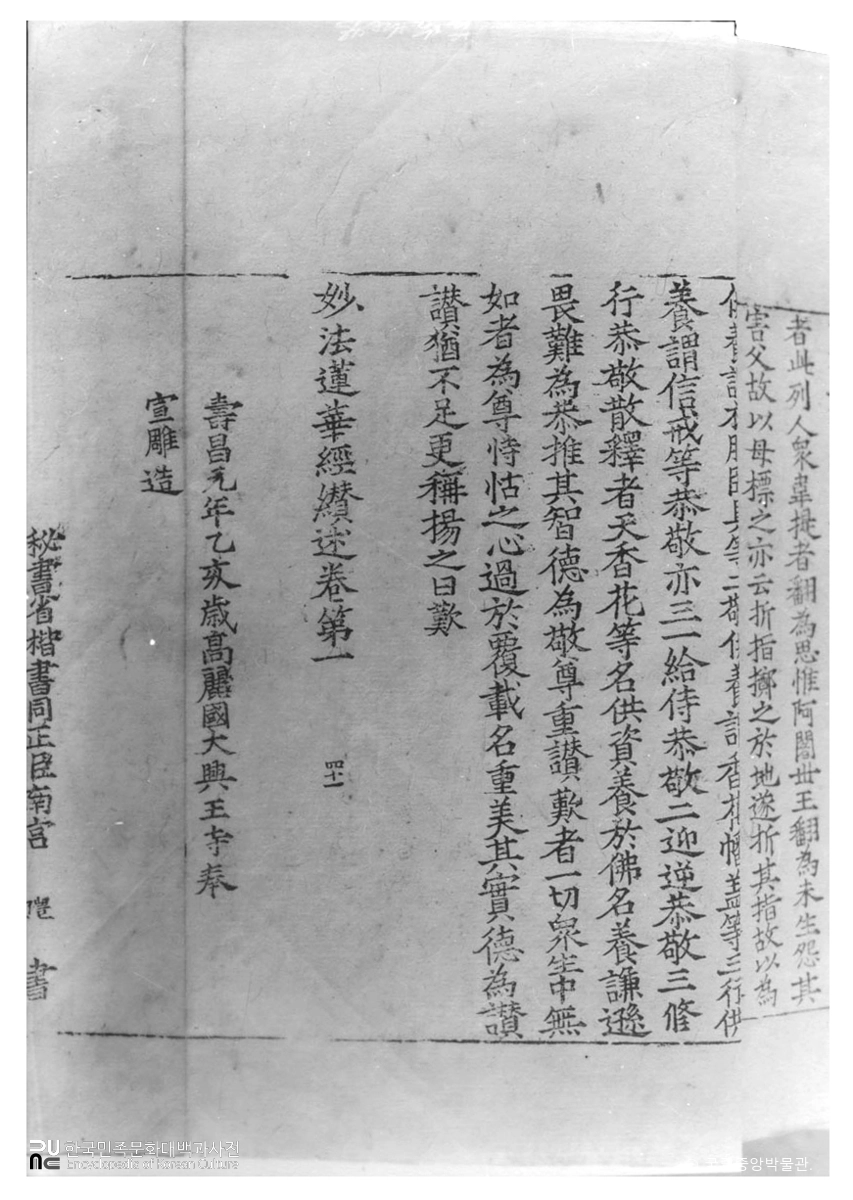 者此列人衆韋提者翻為思惟阿闍世王翻為未生怨其
害父故以母標之亦云折指擲之於地遂折其指故以為
供養謂衣服臥具等二敬供養謂香花幡盖等三行供
養謂信戒等恭敬亦三一給侍恭敬二迎逆恭敬三修
行恭敬散釋者天香花等名供資養於佛名養謙遜
畏難為恭推其智德為敬尊重讃歎者一切衆生中無
如者為尊恃怙之心過於覆載名重美其實德為讃
讃猶不足更稱揚之曰歎
妙法蓮華經纘述卷第一
四十一
壽昌元年乙亥歳高麗國大興王寺奉
宣雕造
秘書省楷書同正臣南宫 書
한국민족문화대백과사전
Encyclopedia of Korean Culture
중앙박물관